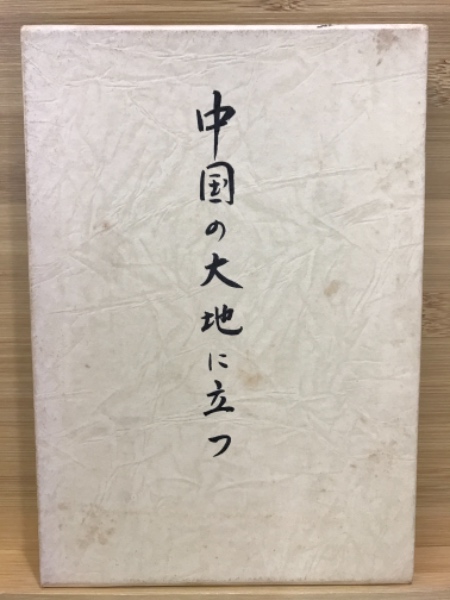 中国の大地に立つ